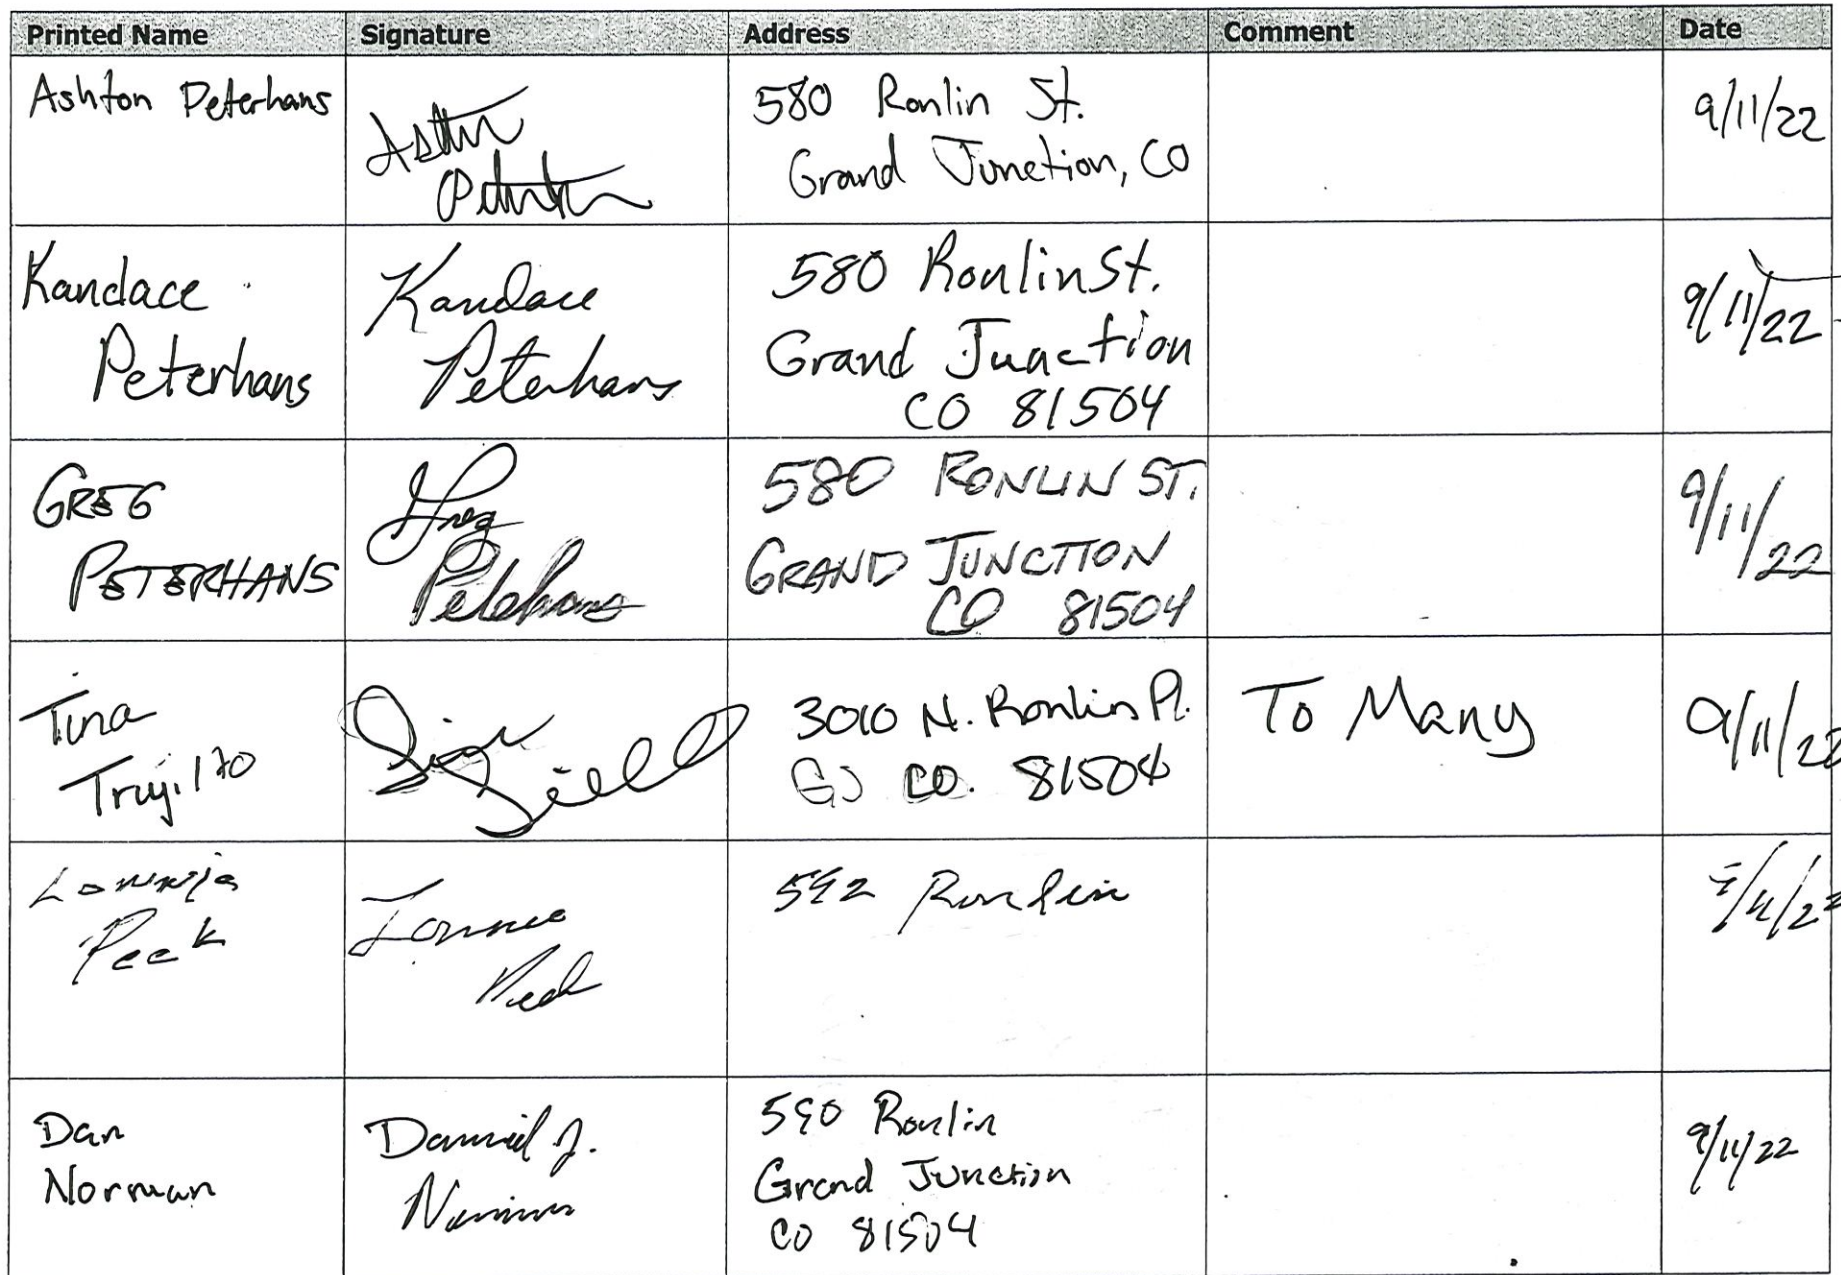 Printed Name Signature Address Comment Date
Ashton Peterhans
580 Ronlin St.
Grand Junction, CO
9/11/22
Kandace
Peterhans
Kandace
Peterhans
580 Ronlin St.
Grand Junction
CO 81504
9/11/22
GREG
PETERHANS
Greg
Peterhans
580 RONLIN ST.
GRAND JUNCTION
CO 81504
9/11/22
Tina
Trujillo
3010 N. Ronlin Pl.
GJ CO. 81504
To Many
9/11/22
Lonnie
Peek
Lonnie
Peek
592 Ronlin
Dan
Norman
Daniel J.
Norman
590 Ronlin
Grand Junction
CO 81504
9/11/22